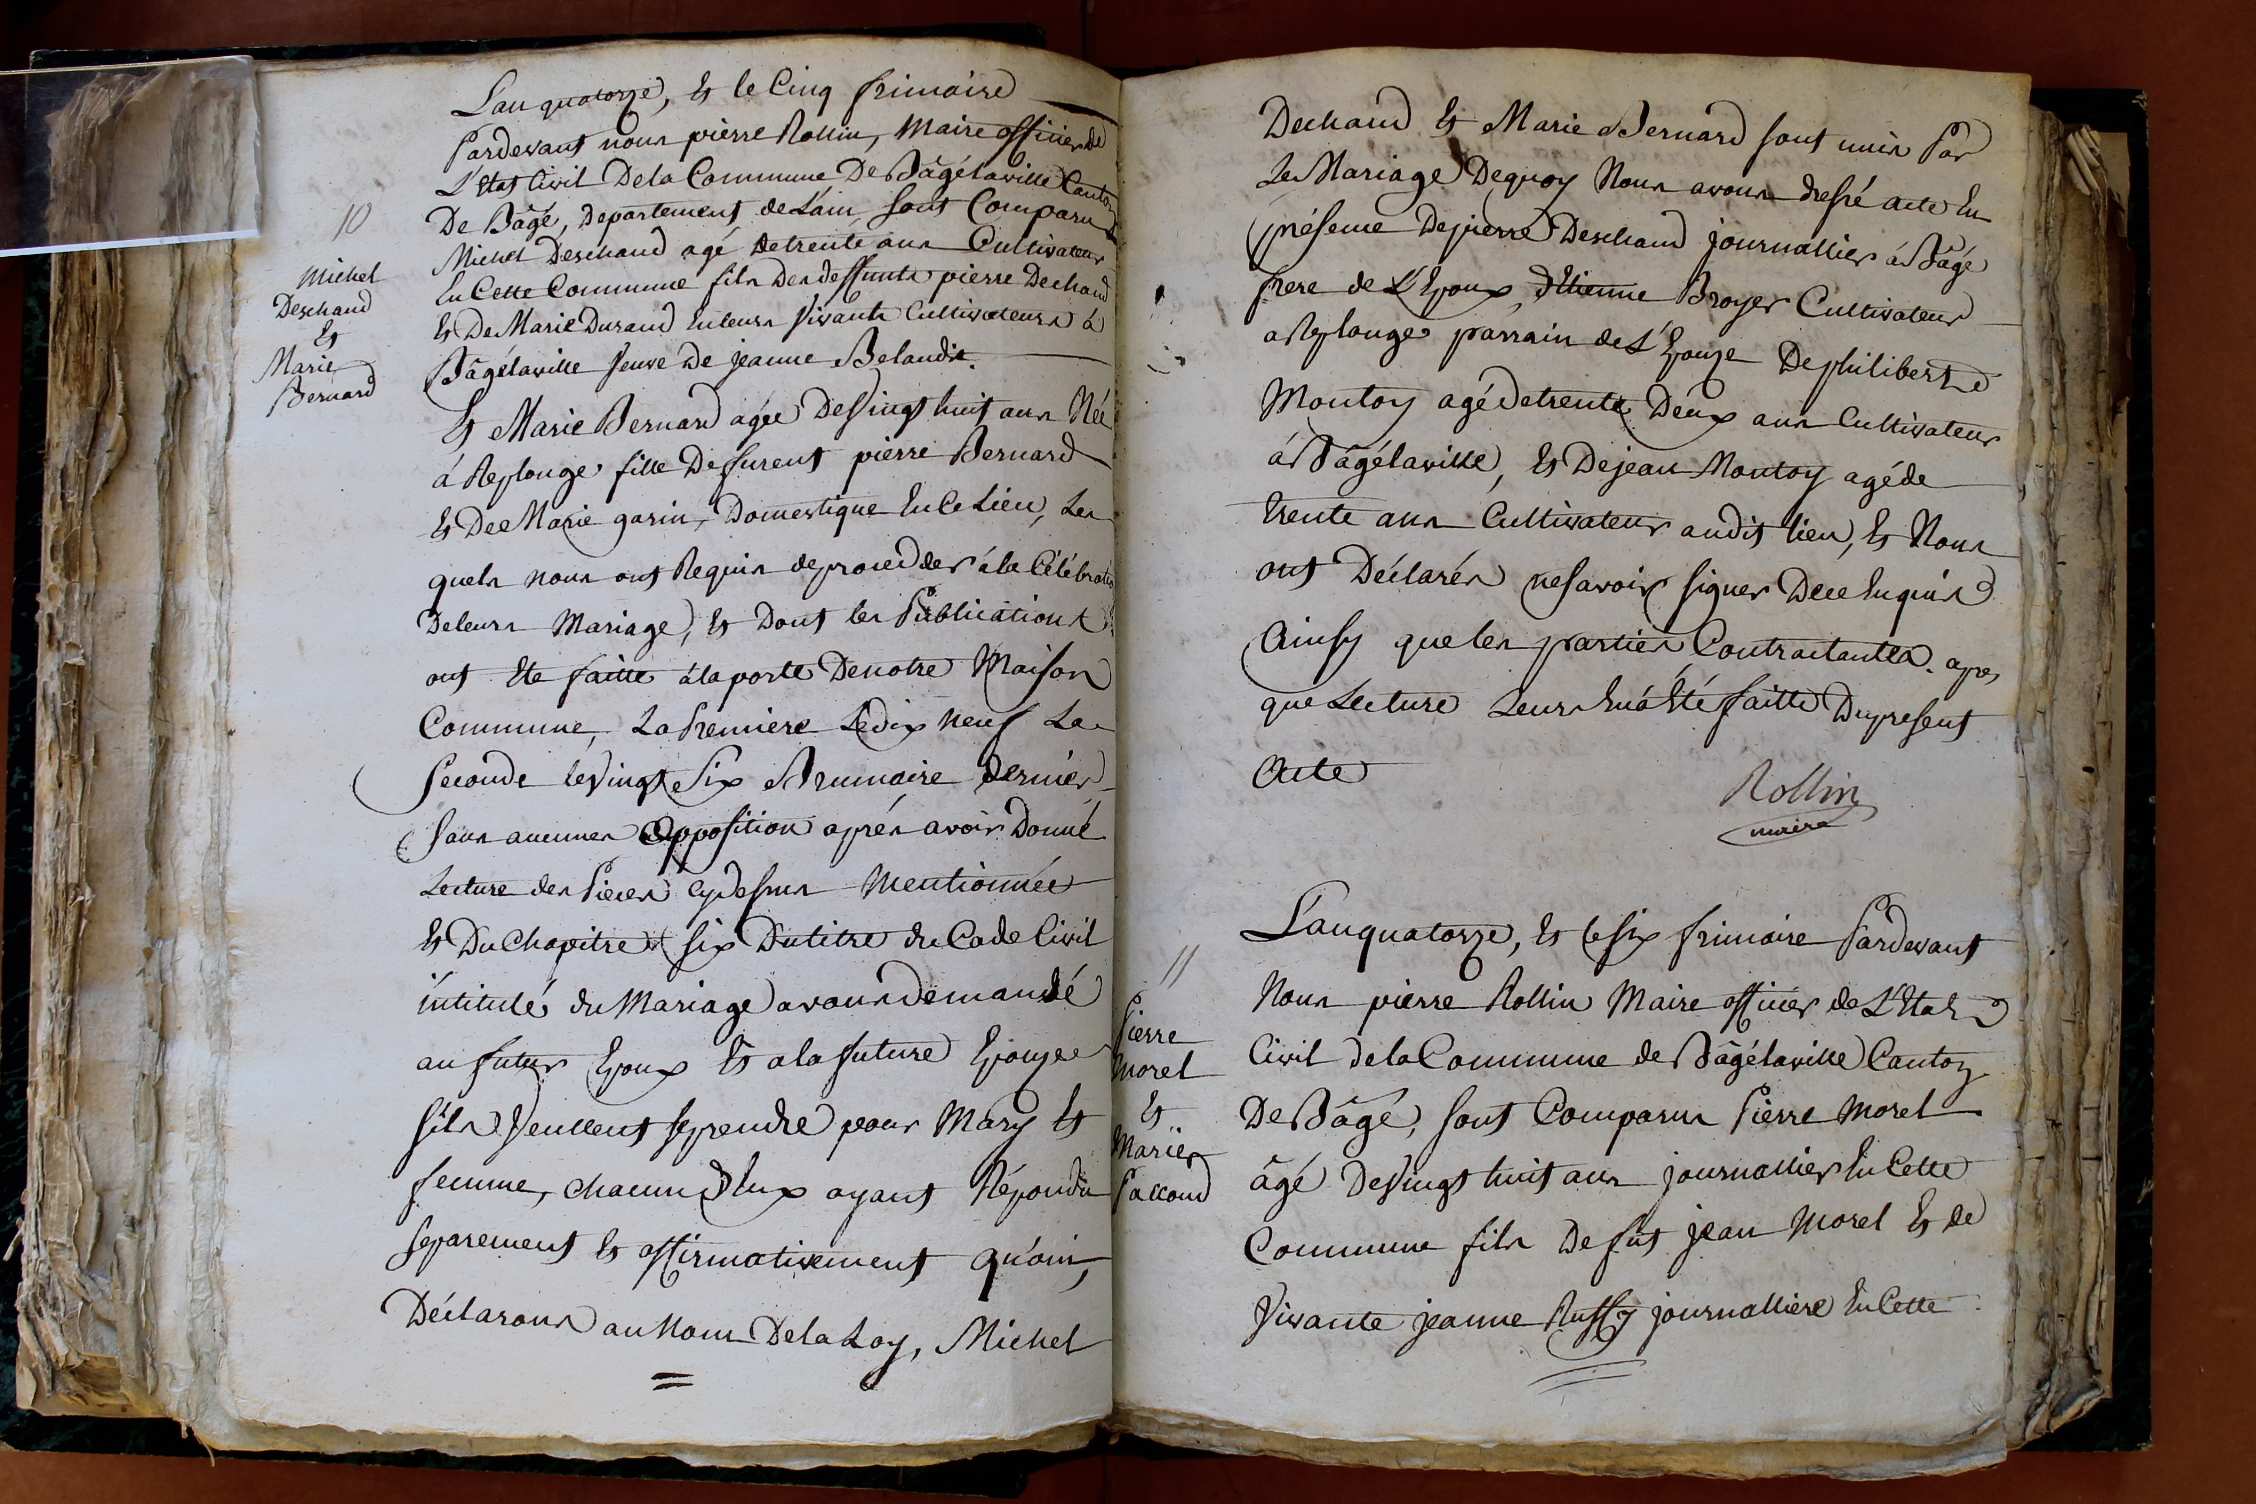 10
Michel
Deschaud
Et
Marie
Bernard
L'an quatorze, Et le Cinq frimaire
Pardevant nous pierre Rollin, Maire officier de
L'Etat Civil De la Commune De Bâgélaville Canton
De Bâgé, Departement de L'ain, sont Comparu
Michel Deschaud agé de trente ans Cultivateur
En Cette Commune fils des deffunts pierre Dechaud
Et De Marie Durand En leurs Vivants Cultivateurs à
Bâgélaville Veuve De jeanne Belaudit.
Et Marie Bernard agée De Vingt huit ans Née
à Replonge fille Defurent pierre Bernard
Et Dee Marie garin, Domestique En Ce Lieu, Les
quels nous ont Requis de proceder à la Célébration
De leurs Mariage, Et Dont les Publications
ont Eté faitte à la porte De notre Maison
Commune, La Premiere Le dix neuf La
Seconde le Vingt Six Brumaire dernier
sans aucunes Opposition après avoir Donné
Lecture des Pieces cy dessus Mentionnée
Et Du Chapitre six Du titre du Code Civil
intitulé du Mariage avons demandé
au futur Epoux Et a la future Epouze
S'ils Veullent se prendre pour Mary Et
femme, chacun d'Eux ayant Répondu
separement Et affirmativement qu'oui,
Déclarons au Nom De la Loy, Michel
Dechaud Et Marie Bernard sont unis Par
Le Mariage De quoy Nous avons dressé acte En
présence De pierre Deschaud journallier à Bâgé
frere de L'Epoux, d'Etienne Broyer Cultivateur
a Replonge parrain de L'Epouze De philibert
Montoy agé de trente Deux ans Cultivateur
à Bâgélaville, Et De jean Montoy agé de
trente ans Cultivateur audit lieu, Et Nous
ont Déclarés ne savoir signer De ce Enquis
Ainsy que les parties Contractantes. apres
que Lecture Leurs En à Eté faitte Du present
Acte
Rollin
maire
11
Pierre
Morel
Et
Marie
Paccoud
L'an quatorze, Et le six frimaire Pardevant
Nous pierre Rollin Maire officier de L'Etat
Civil de la Commune de Bâgélaville Canton
De Bâgé, sont Comparus Pierre Morel
âgé De Vingt huit ans journallier En Cette
Commune fils De fut jean Morel Et de
Vivante jeanne Ruffy journalliere En Cette